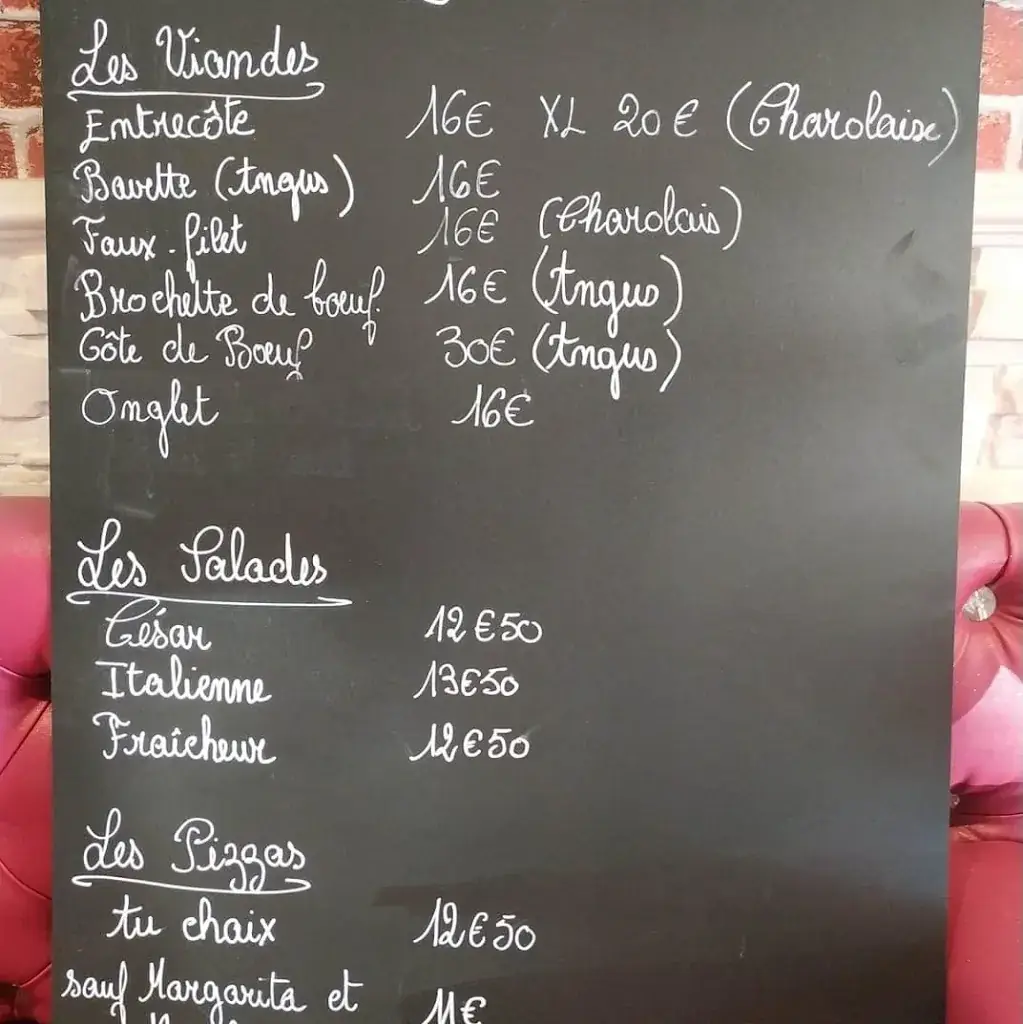 Les Viandes
Entrecôte 16€ XL 20€ (Charolaise)
Bavette (Angus) 16€
Faux-filet 16€ (Charolais)
Brochette de bœuf 16€ (Angus)
Côte de Bœuf 30€ (Angus)
Onglet 16€
Les Salades
César 12€50
Italienne 13€50
Fraîcheur 12€50
Les Pizzas
au choix 12€50
sauf Margarita et 11€